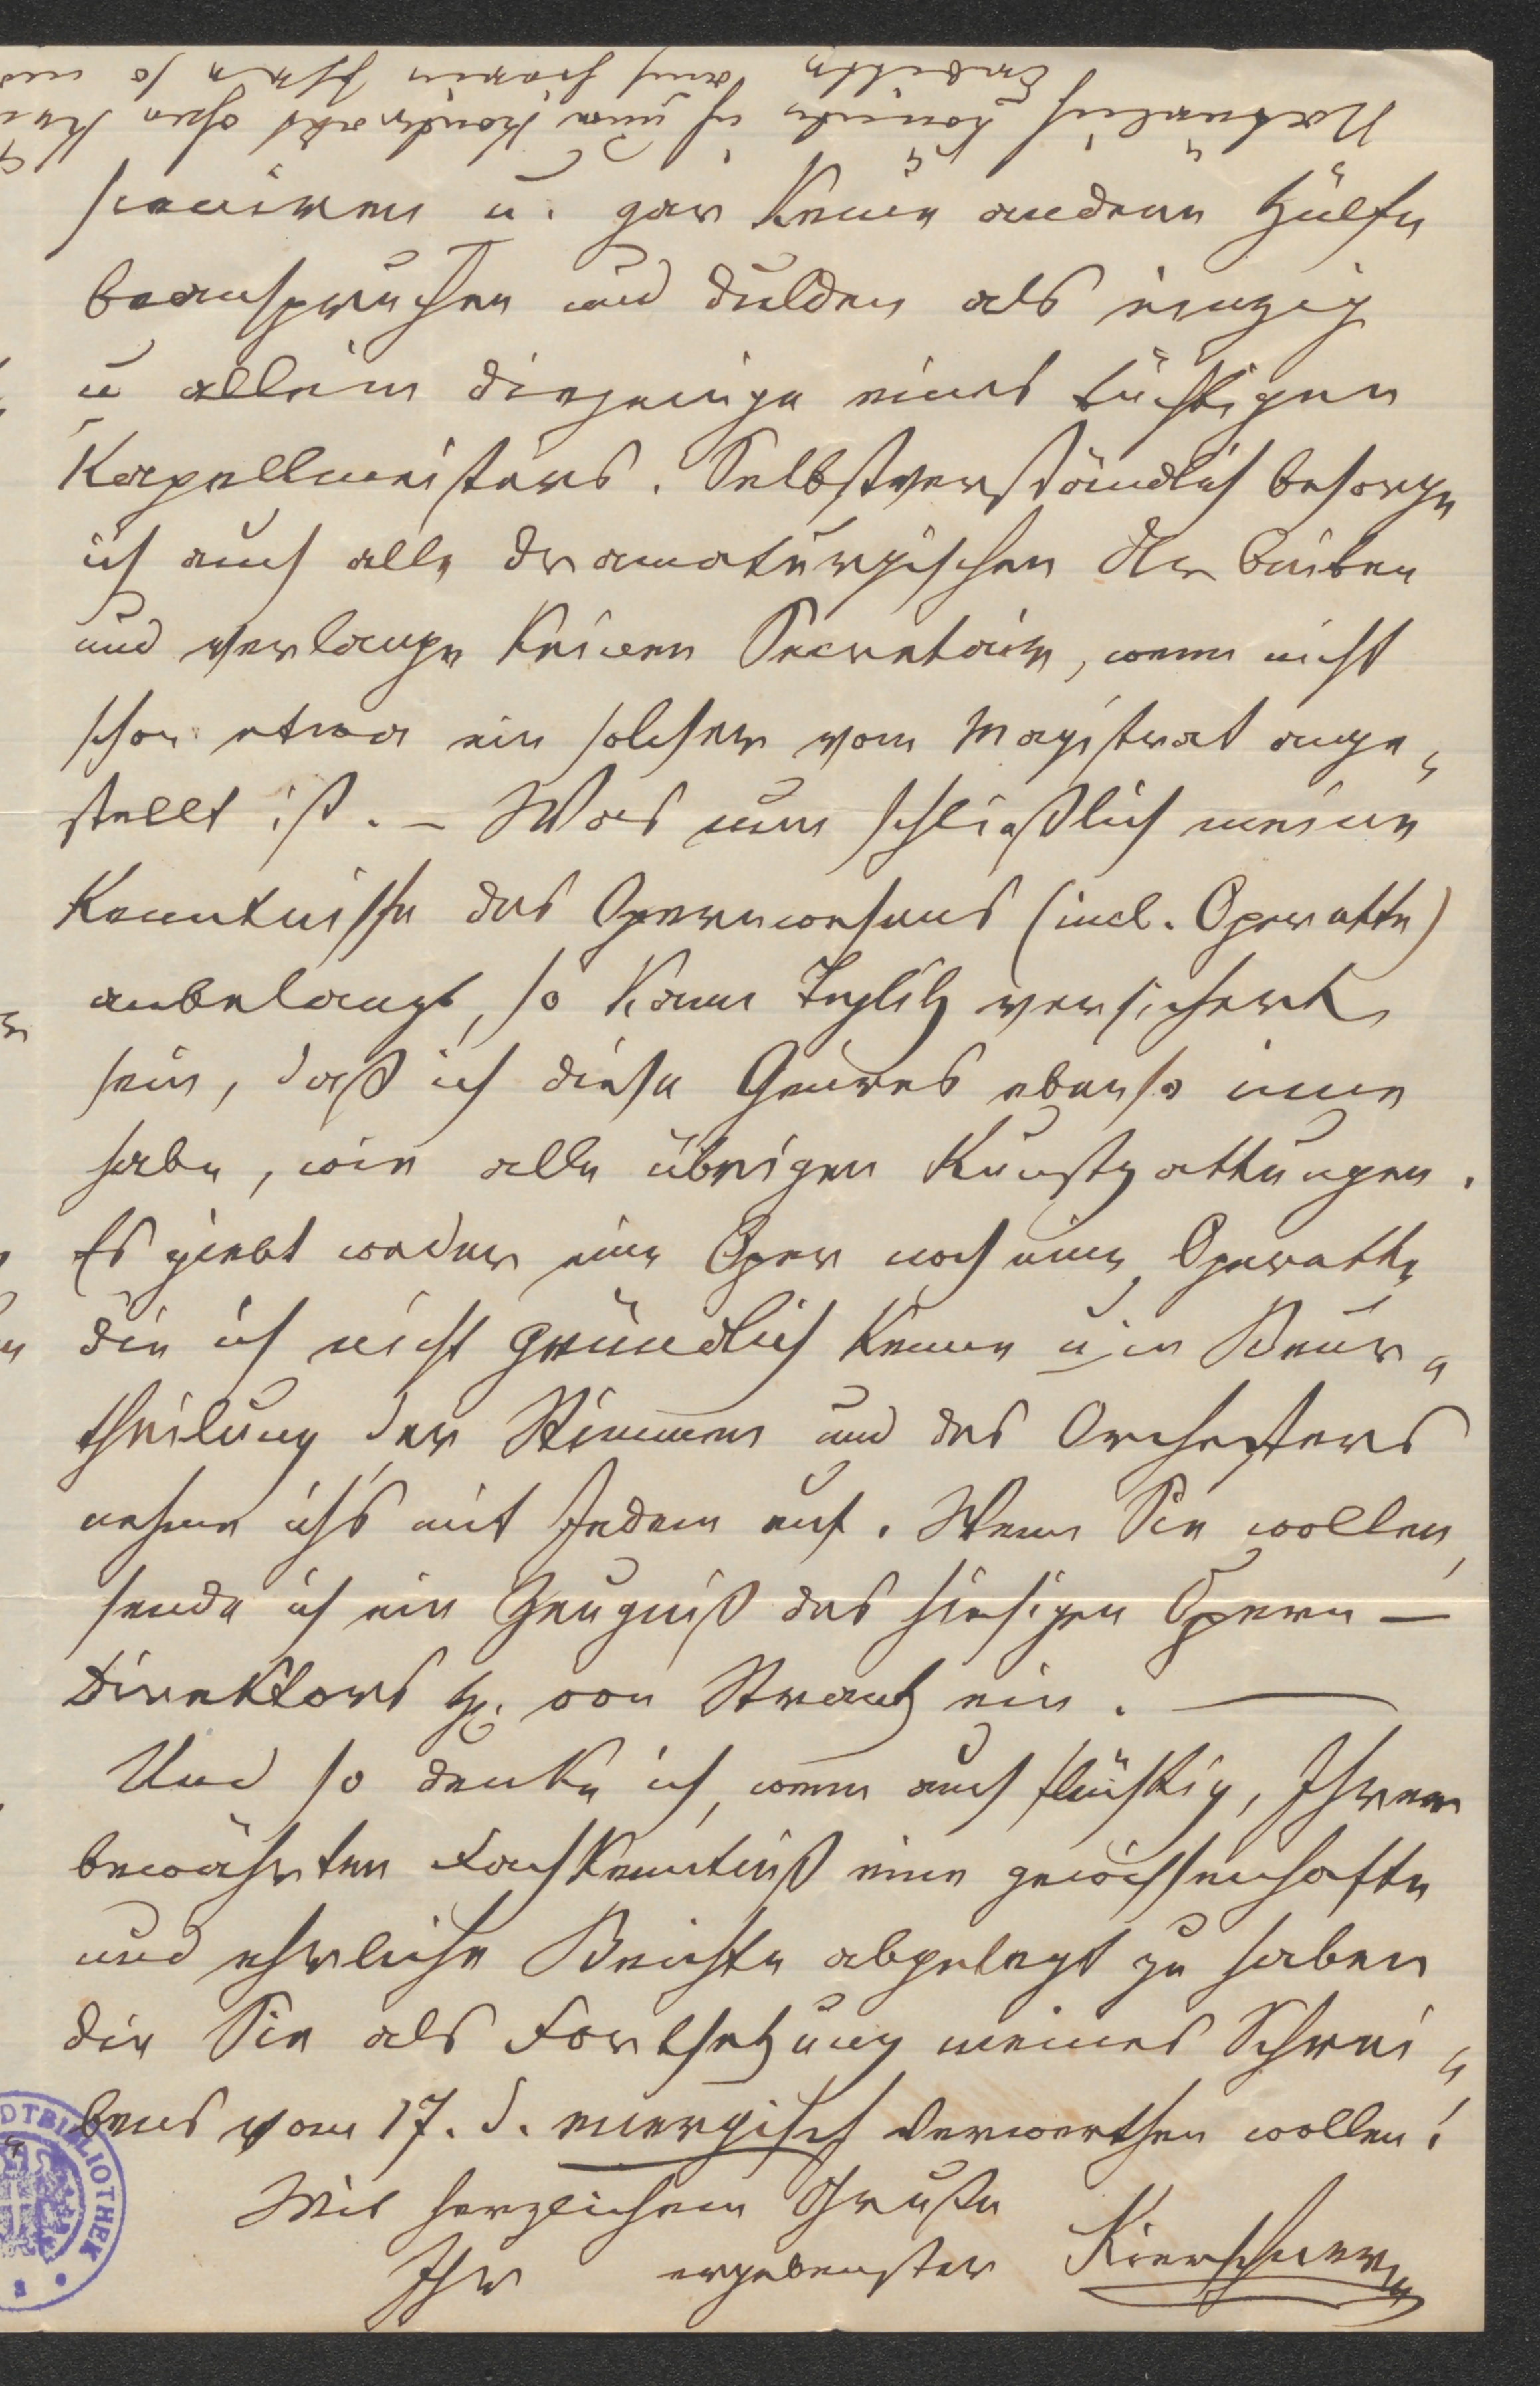 Natürlich könnte ich nur Kontrakt ohne
auch hierin
scenieren u. gar keine andere Hülfe
beanspruchen und dulden als einzig
u allein diejenige eines tüchtigen
Kapellmeisters. Selbstverständlich besorge
ich auch alle dramaturgischen Arbeiten
und verlange keinen Secretair, wenn nicht
schon etwa ein solcher vom Magistrat ange„
stellt ist. – Was nun schließlich meine
Kenntnisse des Opernwesens (incl. Operette)
anbelangt, so kann Teplitz versichert
sein, daß ich diese Genres ebenso inne
habe, wie alle übrigen Kunstgattungen.
Es giebt weder eine Oper noch eine Operette,
die ich nicht gründlich kenne u in Beur„
theilung der Stimmen und des Orchesters
nehme ich's mit Jedem auf. Wenn Sie wollen,
sende ich ein Zeugniß des hiesigen Opern –
Direktors H. von Strantz ein. —
Und so denke ich, wenn auch flüchtig, Ihrer
bewährten Fachkenntniß eine gewissenhafte
und ehrliche Beichte abgelegt zu haben
die Sie als Fortsetzung meines Schrei„
bens vom 17. d. energisch verwerthen wollen!
Mit herzlichem Gruße
Ihr ergebenster Kierschner
DTBIBLIOTHEK